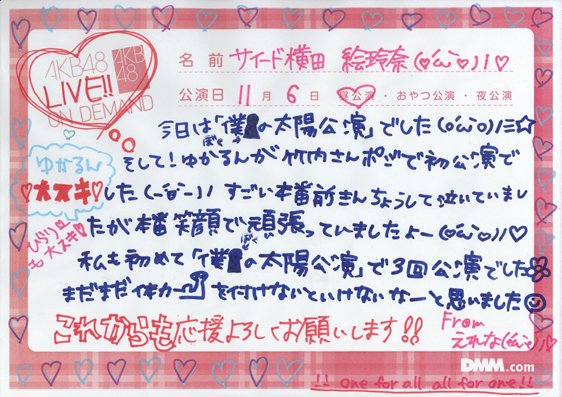 AKB48
LIVE!!
ON DEMAND
AKB
48
名前 サイード横田 絵玲奈(o'ω`o)ﾉ♡
公演日 11月 6日 昼公演・おやつ公演・夜公演
今日は「僕の太陽公演」でした(o'ω`o)ﾉ三☆
ぼく
そして！ゆかるんが竹内さんポジで初公演で
ゆかるん
大スキ
した(-ω-)ﾉ すごい本番前きんちょうして泣いていまし
たが本番笑顔で頑張っていましたよー(o'ω`o)ﾉ♡
ひらり
も大スキ
私も初めて「僕の太陽公演」で3回公演でした
ぼく
まだまだ体力を付けないといけないなーと思いました
これからも応援よろしくお願いします!!
From
えれな('ω`o)ﾉ
DMM.com
!! one for all all for one!!